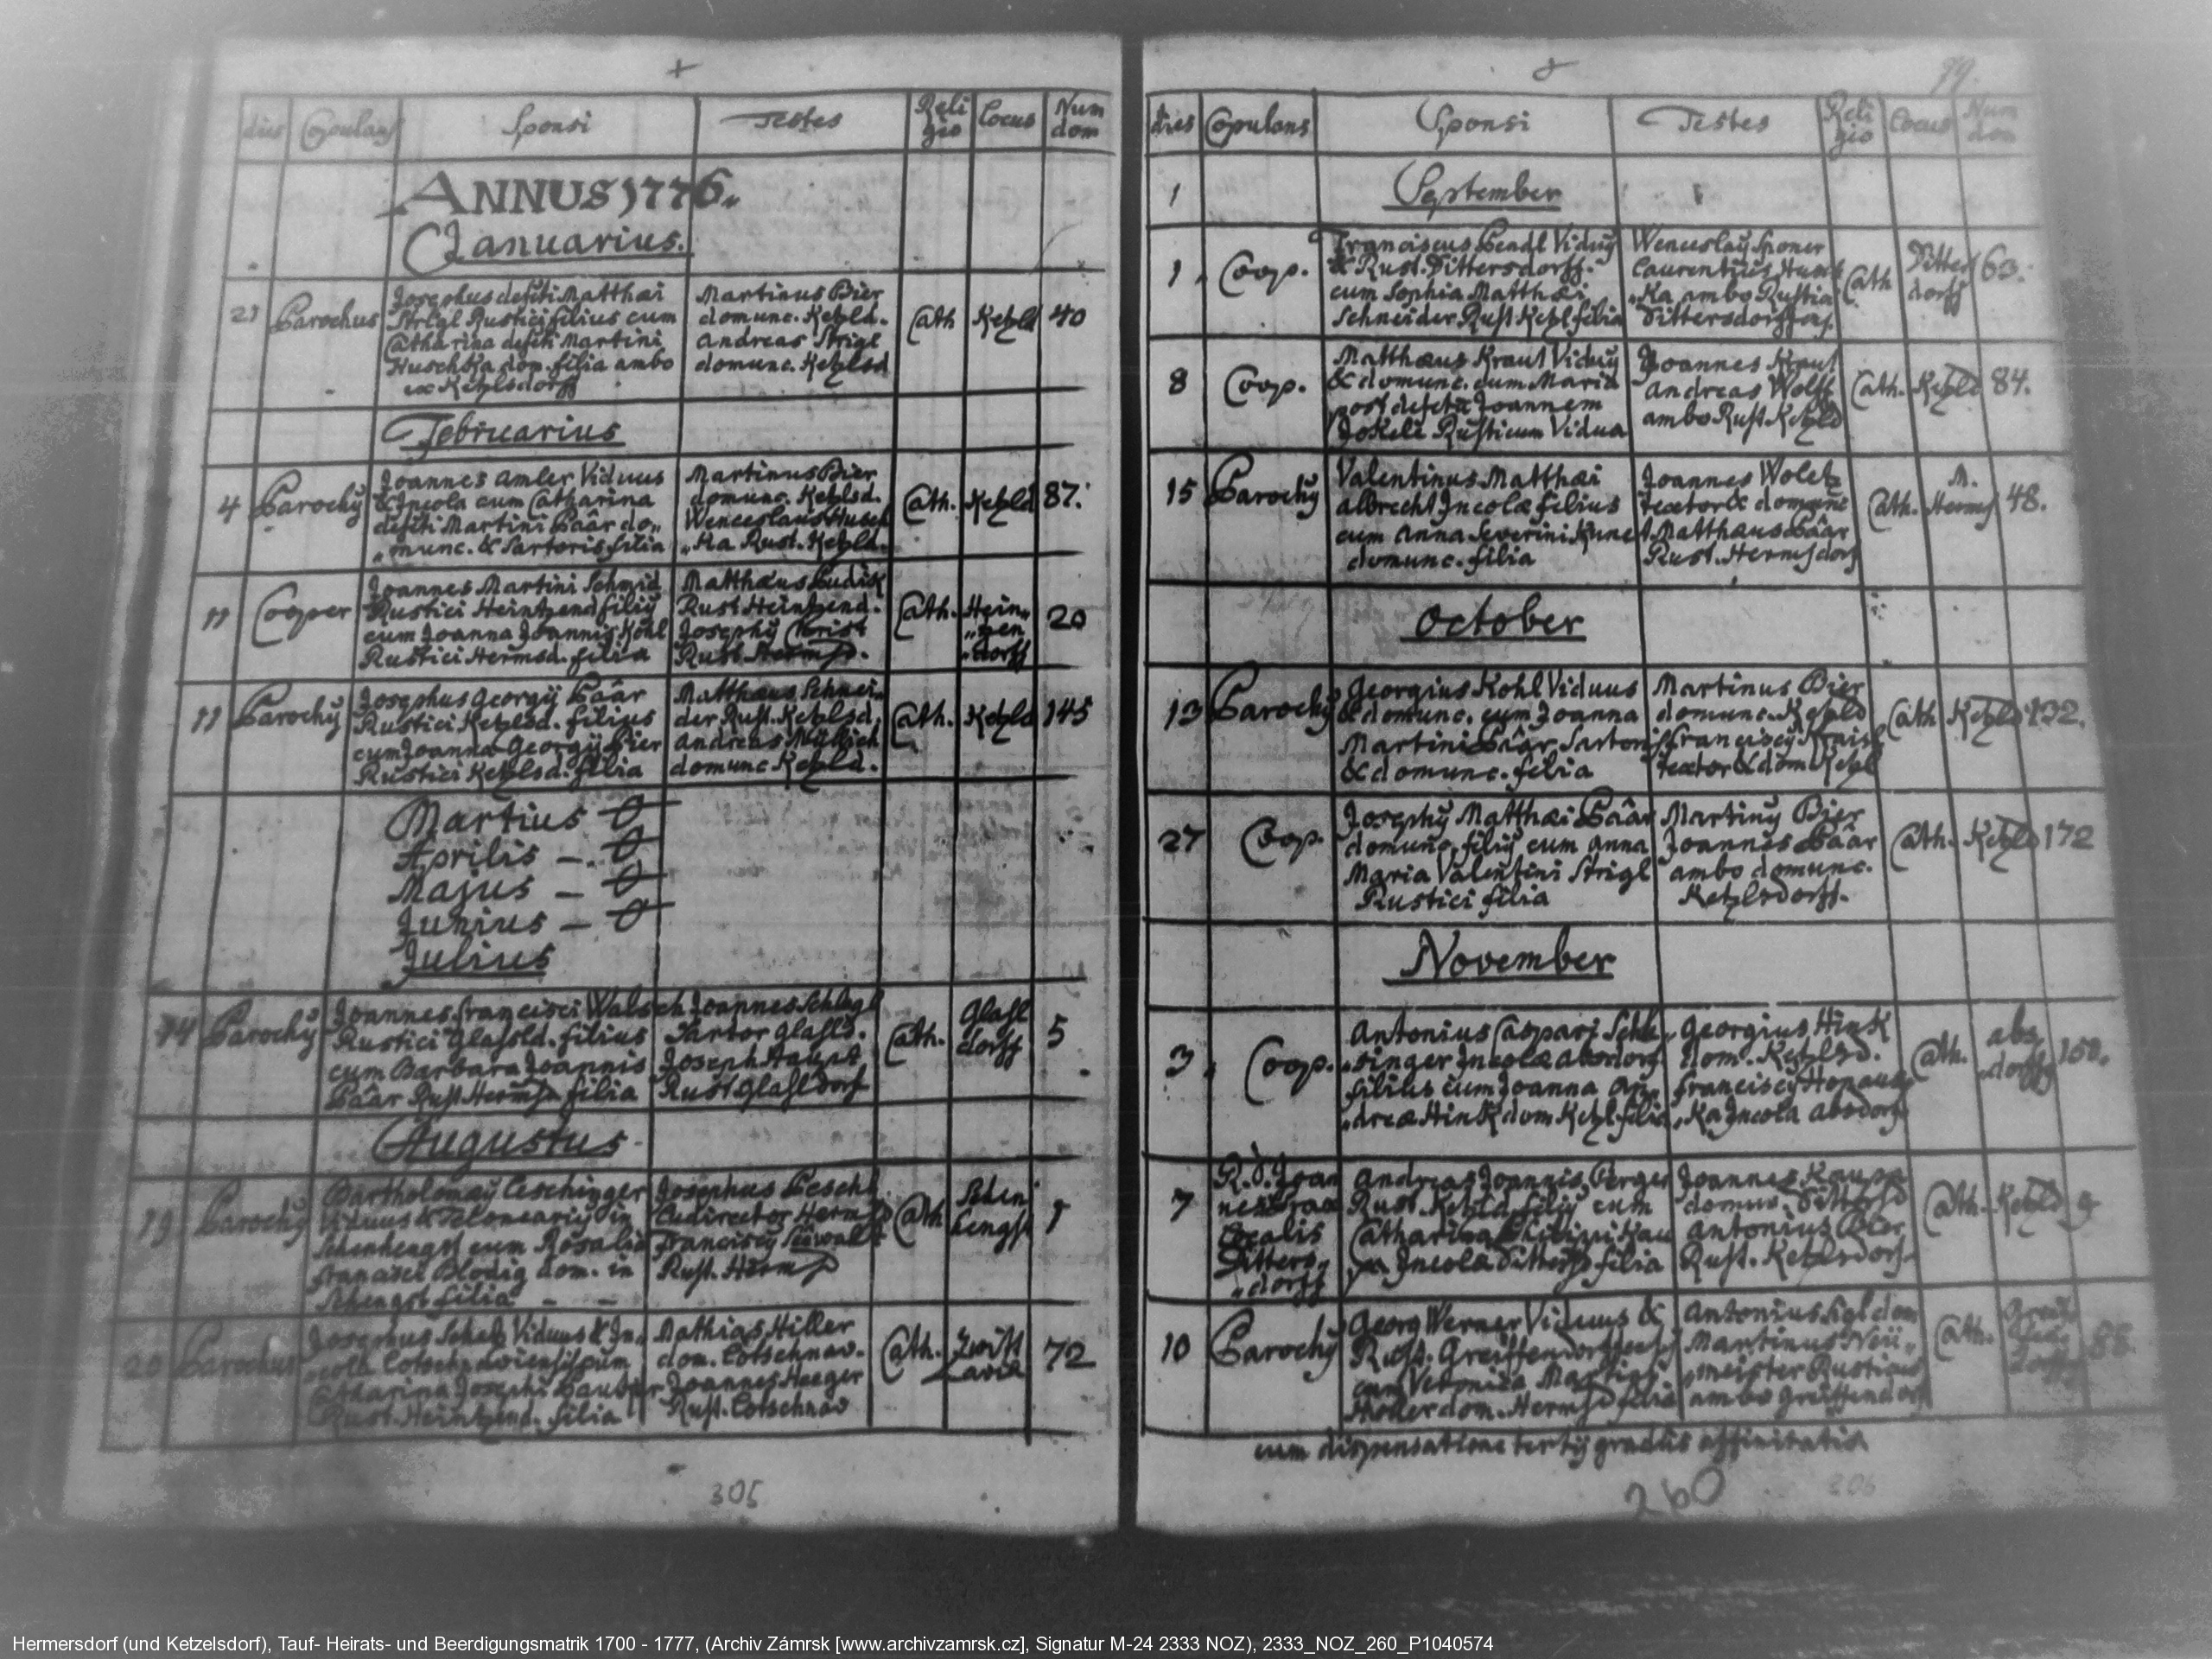 dies Copulans Sponsi Testes Reli gio Locus Num dom
ANNUS 1776.
Januarius.
21 Parochus
Josephus defcti Matthæi
Strigl Rustici filius cum
Catharina defcti Martini
Huschka dom. filia ambo
ex Ketzlsdorff
Martinus Bier
domunc. Ketzld.
Andreas Strigl
domunc. Ketzlsd
Cath Ketzld 40
Februarius
4 Parochy
Joannes Amler Viduus
& Incola cum Catharina
defcti Martini Päâr do„
„munc. & Sartoris filia
Martinus Bier
domunc. Ketzlsd.
Wenceslaus Husch
„Ka Rust. Ketzld.
Cath. Ketzld 87.
11 Cooper
Joannes Martini Schmid
Rustici Heintzend filiy
cum Joanna Joannis Kohl
Rustici Hermsd. filia
Matthæus
Rust Heintzend.
Josephy Christ
Rust Hermsd.
Cath. Hein„
„zen
„dorff
20
11 Parochy
Josephus Georgÿ Päâr
Rustici Ketzlsd. filius
cum Joanna Georgÿ Bier
Rustici Ketzlsd. filia
Matthæus Schnei„
der Rust. Ketzlsd.
Andreas
domunc Ketzld.
Cath. Ketzld 145
Martius – 0
Aprilis – 0
Majus – 0
Junius – 0
Julius
14 Parochy
Joannes Francisci Walsch
Rustici Glasld. filius
cum Barbara Joannis
Päâr Rust Hermsd filia
Joannes Schlegl
Sartor Glasld.
Joseph Haupt
Rust Glasldorf
Cath. Glasl
dorff
5
Augustus
19 Parochy
Bartholomæy
Viduus & Teloneariy in
Schenhengst cum Rosalia
Blodig dom. in
Schengst filia – –
Josephus Peschl
Ludirector Hermsd
Franciscy
Rust. Hermsd
Cath Schen
hengst
1
20 Parochus
Josephus Viduus & In„
„cola
Catharina Josephi
Rust. Heintzend. filia
Mathias Hiller
dom. Lotschnav.
Joannes Heeger
Rust. Lotschnav
Cath. Zwitt
avia
72
305
99.
dies Copulans Sponsi Testes Reli gio Locus Num dom
1 September
1. Coop.
Franciscus Pendl Viduy
& Rust. Dittersdorff.
cum Sophia Matthæi
Schneider Rust Ketzl filia
Wenceslay Sponer
Laurentius Husch
„Ka ambo Rustici
Dittersdorff
Cath Ditter
dorff
63.
8 Coop.
Matthæus Kraul Viduy
& domunc. cum Maria
post defctū Joannem
Jokeli Rusticum Vidua
Joannes Kraul
Andreas Wolff
ambo Rust Ketzld
Cath. Ketzld 84.
15 Parochy
Valentinus Matthæi
Albrecht Incolæ filius
cum Anna Severini Kunert
domunc. filia
Joannes Woletz
Textor & domunc
Matthæus Päâr
Rust. Hermsdorf
Cath. M.
Hermsd
48.
October
13 Parochy
Georgius Kohl Viduus
& domunc. cum Joanna
Martini Päâr Sartoris
& domunc. filia
Martinus Bier
domunc. Ketzld
Franciscy
Textor & dom Ketzl
Cath Ketzld 132.
27 Coop.
Josephy Matthæi Päâr
domunc. filiy cum Anna
Maria Valentini Strigl
Rustici filia
Martiny Bier
Joannes Päâr
ambo domunc.
Ketzlsdorff.
Cath. Ketzld 172
November
3. Coop.
Antonius Caspari Schle„
„singer Incolæ absdorf
filius cum Joanna An„
„dreæ Hink dom Ketzl filia
Georgius Hink
dom. Ketzlsd.
Franciscy Honaus„
„Ka Incola absdorf
Cath. abs„
„dorff
150.
7 R.D. Joan
nes
Localis
Ditters„
„dorff
Andreas Joannis Berger
Rust. Ketzld filiy cum
Catharina Philippi Kau
pa Incolæ Dittersd filia
Joannes Kaupp
domunc. Dittersd
Antonius Bier
Rust. Ketzlsdorf.
Cath. Ketzld 9
10 Parochy
Georg Werner Viduus &
Rust. Greiffendorffensis
cum Veronica Martini
dom. Hermsd filia
Antonius Sigl dom
Martinus Neü„
„meister Rusticus
ambo Greiffendorf
Cath.
cum dispensatione tertÿ gradûs affinitatis
260
306
Hermersdorf (und Ketzelsdorf), Tauf- Heirats- und Beerdigungsmatrik 1700 - 1777, (Archiv Zámrsk [www.archivzamrsk.cz], Signatur M-24 2333 NOZ), 2333_NOZ_260_P1040574